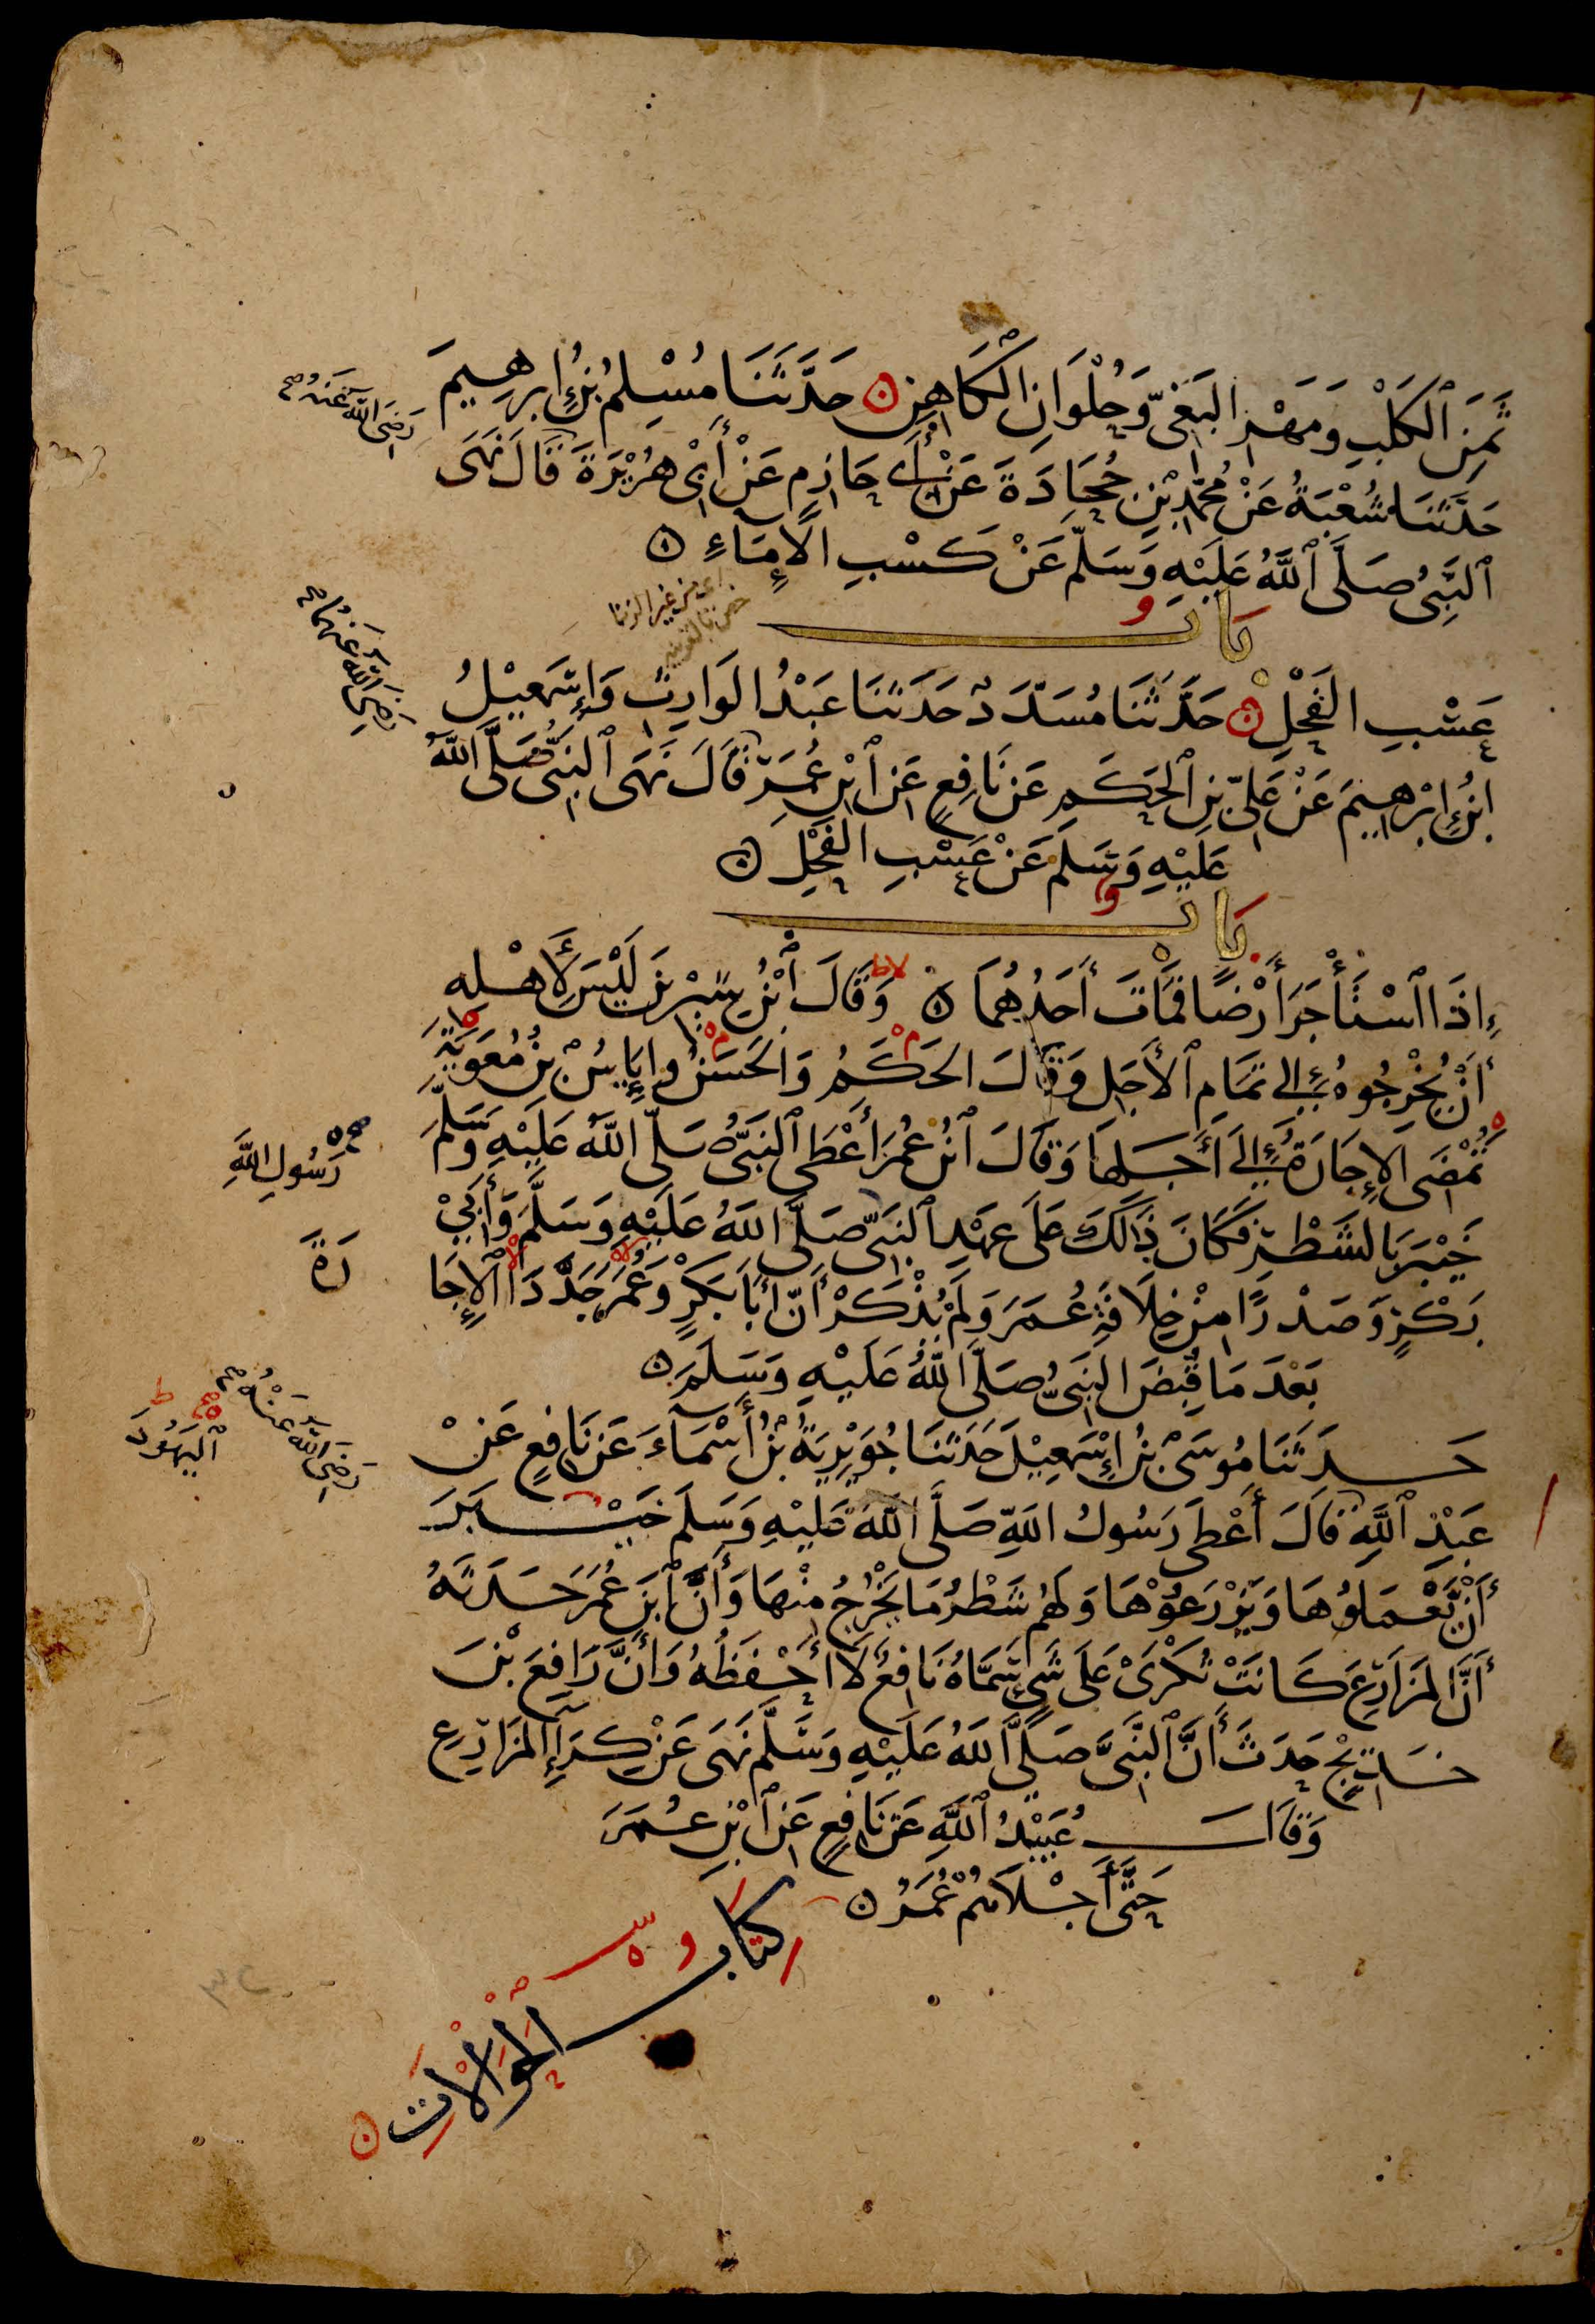 ثَمَنِ ٱلْكَلْبِ وَمَهْرِ البَغِيِّ وَحُلْوَانِ الْكَاهِنِ ۝ حَدَّثَنَا مُسْلِمُ بْنُ إِبْرهِيمَ
رَضِيَ اللَّهُ عَنْهُ صح
حَدَّثَنَا شُعْبَةُ عَنْ مُحَمَّدِ بْنِ جُحَادَةَ عَنْ أَبِي حَازِمٍ عَنْ أَبِي هُرَيْرَةَ قَالَ نَهَى
ٱلنَّبِيُّ صَلَّى ٱللَّهُ عَلَيْهِ وَسَلَّمَ عَنْ كَسْبِ الْإِمَاءِ ۝
أي من غير الزنا
باب
رَضِيَ اللَّهُ عَنْهُمَا صح
عَسْبِ الفَحْلِ ۝ حَدَّثَنَا مُسَدَّدٌ حَدَّثَنَا عَبْدُ الوَارِثِ وَإِسْمَعِيْلُ
ابْنُ إِبْرهِيمَ عَنْ عَلِيِّ بْنِ ٱلْحَكَمِ عَنْ نَافِعٍ عَنِ ٱبْنِ عُمَرَ قَالَ نَهَى ٱلنَّبِيُّ صَلَّى اللَّهُ
عَلَيْهِ وَسَلَّمَ عَنْ عَسْبِ الفَحْلِ ۝
باب
إِذَا ٱسْتَأْجَرَ أَرْضًا فَمَاتَ أَحَدُهُمَا ۝ وَقَالَ ٱبْنُ سِيْرِينَ لَيْسَ لِأَهْلِهِ
أَنْ يُخْرِجُوهُ إِلَى تَمَامِ ٱلْأَجَلِ وَقَالَ الحَكَمُ وَالحَسَنُ وإِيَاسُ بْنُ مُعَوِيَةَ
تُمْضَى الْإِجَارَةُ إِلَى أَجَلِهَا وَقَالَ ٱبْنُ عُمَرَ أَعْطَى ٱلنَّبِيُّ صَلَّى اللَّهُ عَلَيْهِ وَسَلَّمَ
خَيْبَرَ بِالشَّطْرِ فَكَانَ ذَلِكَ عَلَى عَهْدِ ٱلنَّبِيِّ صَلَّى اللَّهُ عَلَيْهِ وَسَلَّمَ وَأَبِيْ
صح رَسُولِ اللَّهِ
بَكْرٍ وَصَدْرًا مِنْ خِلَافَةِ عُمَرَ وَلَمْ يُذْكَرْ أَنَّ أَبَا بَكْرٍ وَعُمَرَ جَدَّدَا ٱلْإِجَا
رَةَ
بَعْدَ مَا قُبِضَ النَّبِيُّ صَلَّى اللَّهُ عَلَيْهِ وَسَلَّمَ ۝
حَدَّثَنَا مُوسَى بْنُ إِسْمَعِيْلَ حَدَّثَنَا جُوَيْرِيَةُ بْنُ أَسْمَآءَ عَنْ نَافِعٍ عَنْ
رَضِيَ اللَّهُ عَنْهُ صح
عَبْدِ ٱللَّهِ قَالَ أَعْطَى رَسُولُ اللَّهِ صَلَّى اللَّهُ عَلَيْهِ وَسَلَّمَ خَيْبَرَ
صح ط ٱلْيَهُودَ
أَنْ يَّعْمَلُوهَا وَيَزْرَعُوْهَا وَلَهُمْ شَطْرُ مَا يَخْرُجُ مِنْهَا وَأَنَّ ٱبْنَ عُمَرَ حَدَّثَهُ
أَنَّ المَزَارِعَ كَانَتْ تُكْرَىْ عَلَى شَيْءٍ سَمَّاهُ نَافِعٌ لَا أَحْفَظُهُ وَأَنَّ رَافِعَ بْنَ
خَدِيْجٍ حَدَّثَ أَنَّ ٱلنَّبِيَّ صَلَّى اللَّهُ عَلَيْهِ وَسَلَّمَ نَهَى عَنْ كِرَآءِ المَزَارِعِ
وَقَالَ عُبَيْدُ ٱللَّهِ عَنْ نَافِعٍ عَنِ ٱبْنِ عُمَرَ
حَتَّى أَجْلَاهُمْ عُمَرُ ۝
كِتَابُ
الْحَوَالَاتِ ۝